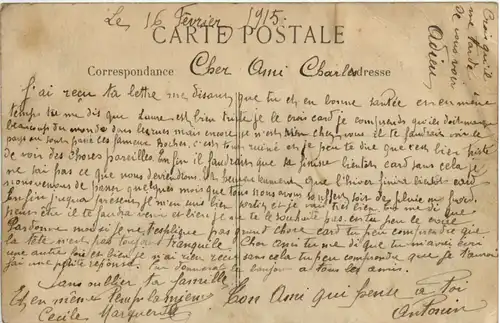 Le 16 Fevrier 1915
CARTE POSTALE
Correspondance Cher Ami Charles adresse
J'ai reçu ta lettre me disant que tu et en bonne santée en en meme
temps tu me dis que Louvre est bien triste je le crois card je comprends qu'ils doit manger
beaucoup du monde dans Eurnes mais encore je n'est rien cher vous et te faudrais voir le
pays ou sont passé ces fameux Boches c'est tout ruiné et je peu te dire que c'est bien triste
de voir des choses pareilles. Enfin il faudrais que sa finisse bientôt card sans cela je
ne sai pas ce que nous deviendons. Et heureusement que l'hiver finira bientôt card
nous venons de passer quelques mois que nous avons souffert soir des pluie ou froid
Enfin jusqua present je m'en suis bien porté et je vais très bien tu me dis que
peut etre il te faudra venir et bien je ne te le souhaite pas. en tu peu le croire
Pardonne moi si je ne t'esplique pas grand chose card tu peu comprendre que
la tête n'ent pas toujour tranquille Cher ami tu me di que tu m'avais écri
une autre fois et bien je n'ai rien reçu sans cela tu peu comprendre que je t'aurai
fai une petite réponse. Tu donneras le bonjour a tous les amis.
sans oublier ta famille
Et en même temps la mienne Ton Ami qui pense a toi
Cecile Marguerite Antonin
Crois qu'il
me tarde
de vous voir
Adieu